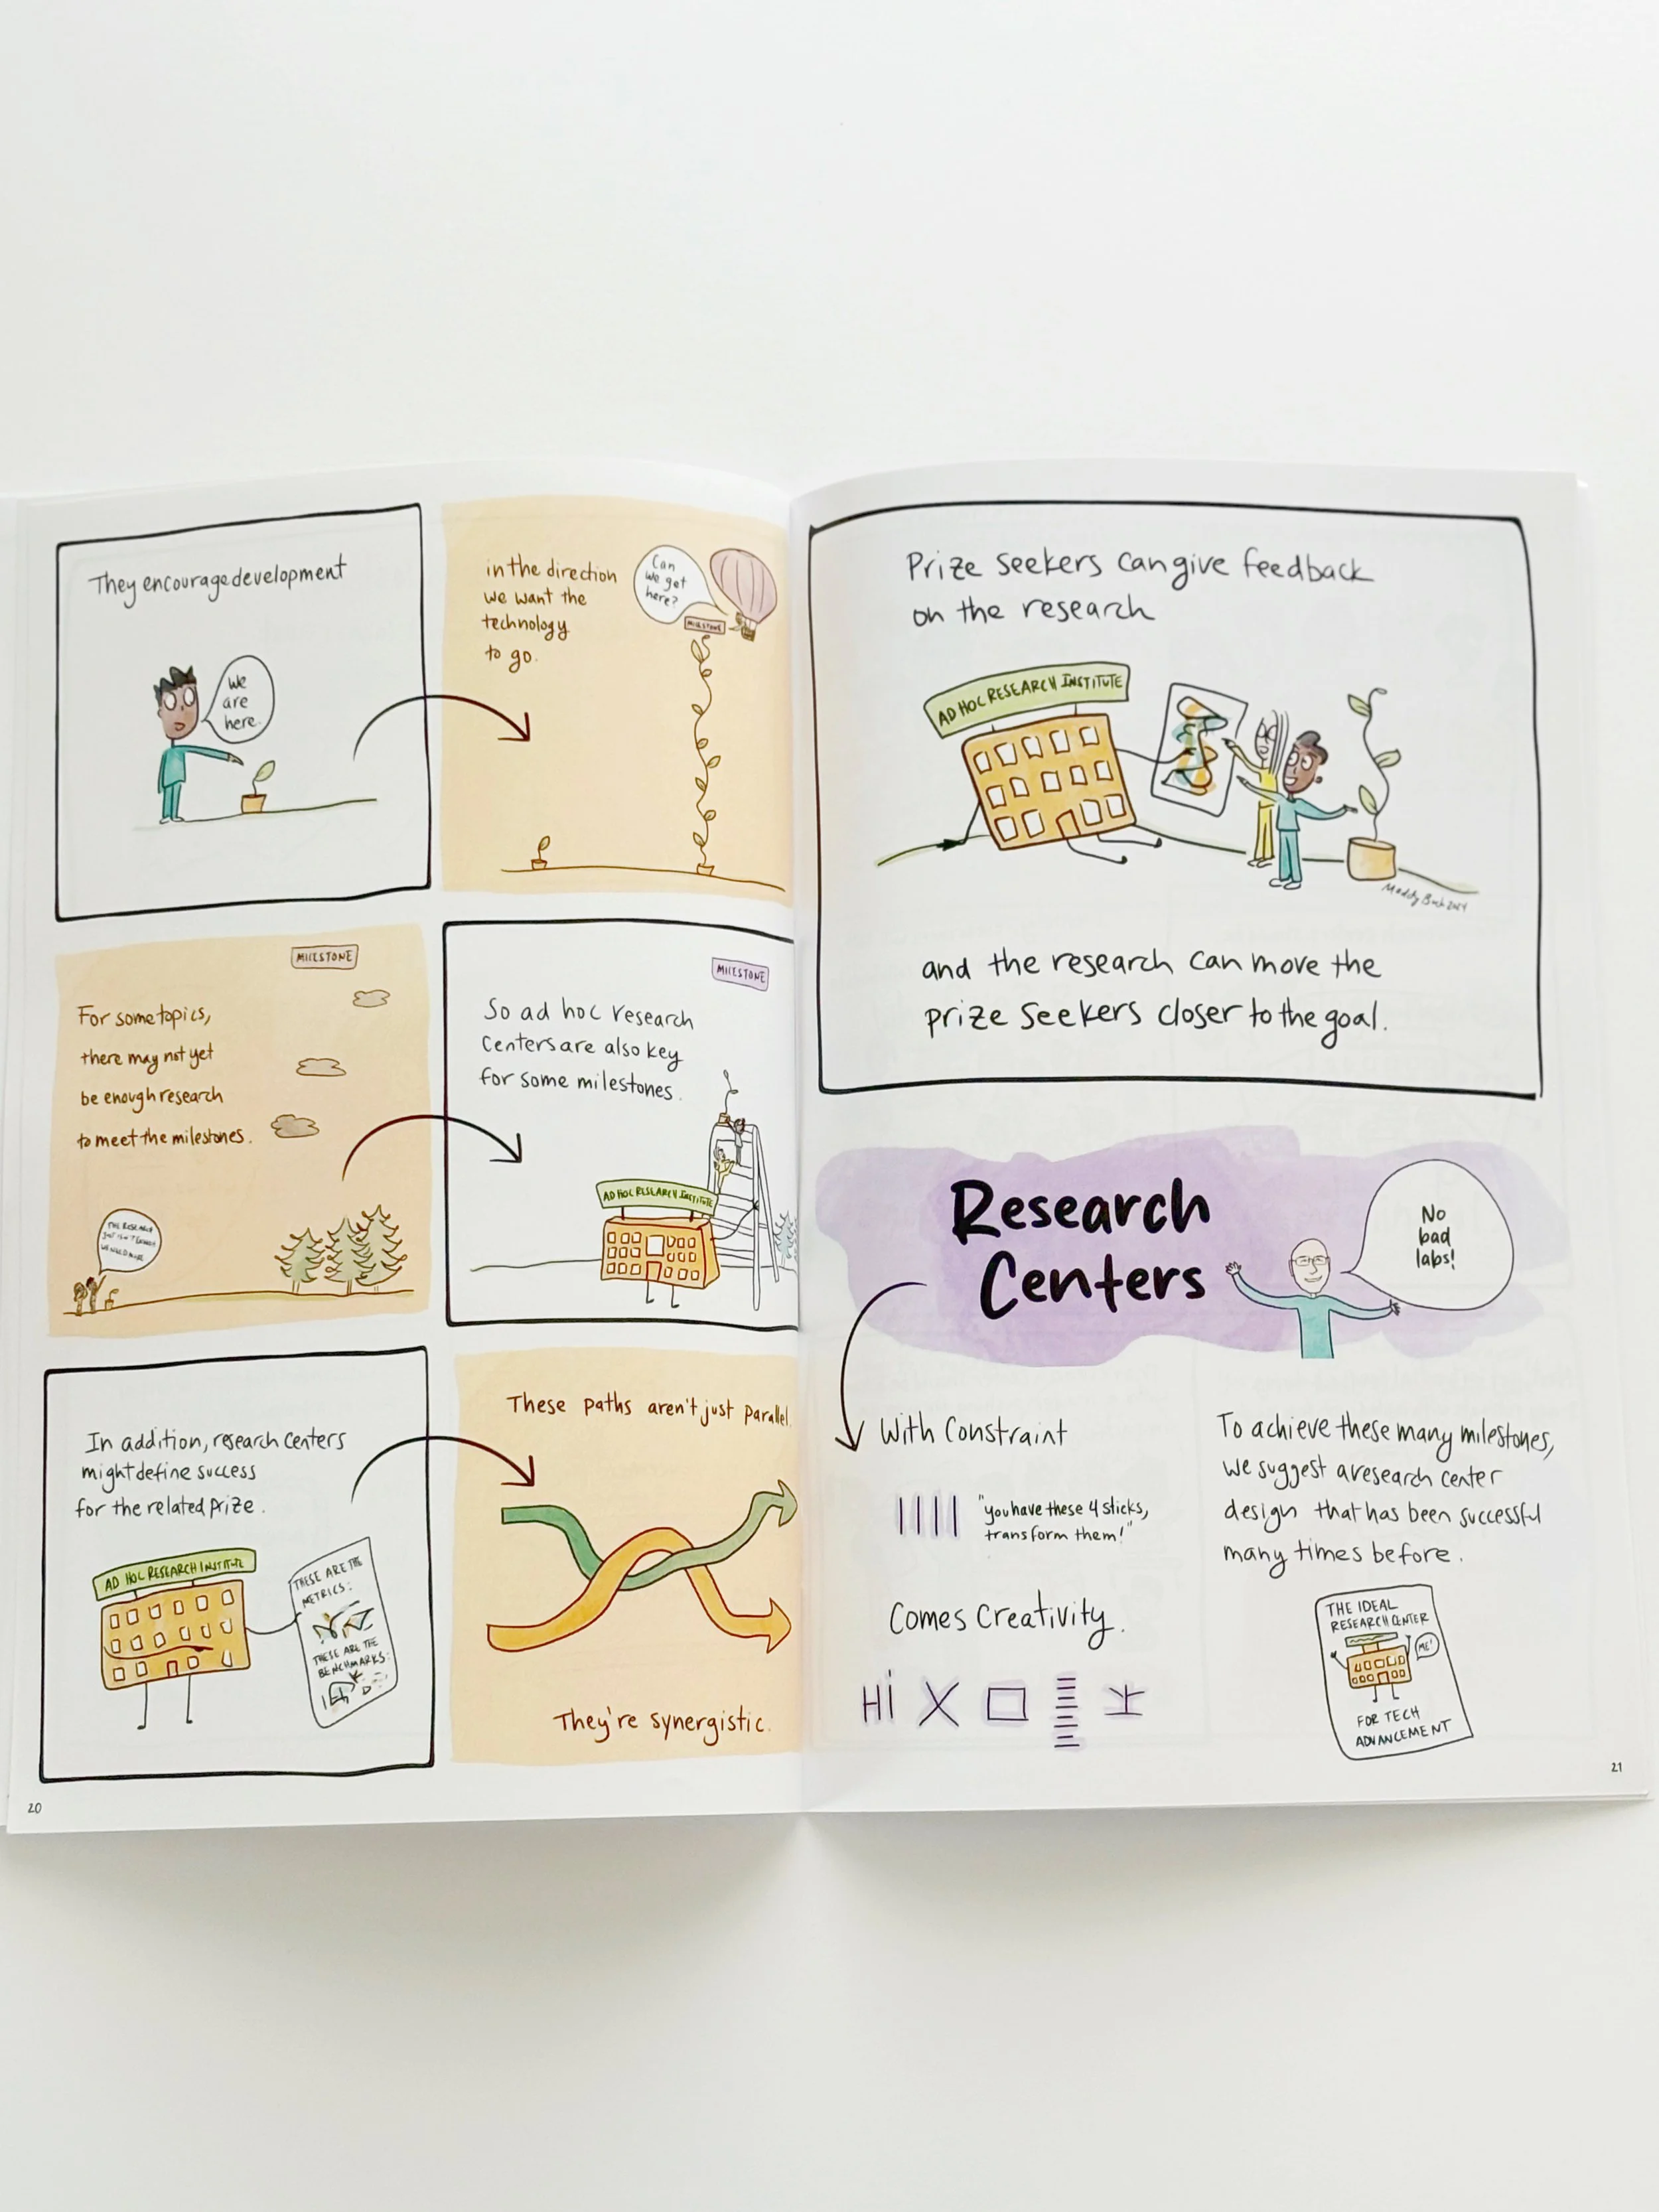 They encourage development
We
are
here.
in the direction
we want the
technology
to go.
Can
we get
here?
MILESTONE
For some topics,
there may not yet
be enough research
to meet the milestones.
MILESTONE
THE RESEARCH
JUST ISN'T ENOUGH
WE NEED MORE
So ad hoc research
centers are also key
for some milestones.
MILESTONE
AD HOC RESEARCH INSTITUTE
In addition, research centers
might define success
for the related prize.
AD HOC RESEARCH INSTITUTE
THESE ARE THE
METRICS:
THESE ARE THE
BENCHMARKS:
These paths aren't just parallel.
They're synergistic.
20
Prize seekers can give feedback
on the research
AD HOC RESEARCH INSTITUTE
2024
and the research can move the
prize seekers closer to the goal.
Research
Centers
No
bad
labs!
With Constraint
"you have these 4 sticks,
transform them!"
Comes Creativity.
Hi
To achieve these many milestones,
we suggest a research center
design that has been successful
many times before.
THE IDEAL
RESEARCH CENTER
ME!
FOR TECH
ADVANCEMENT
21